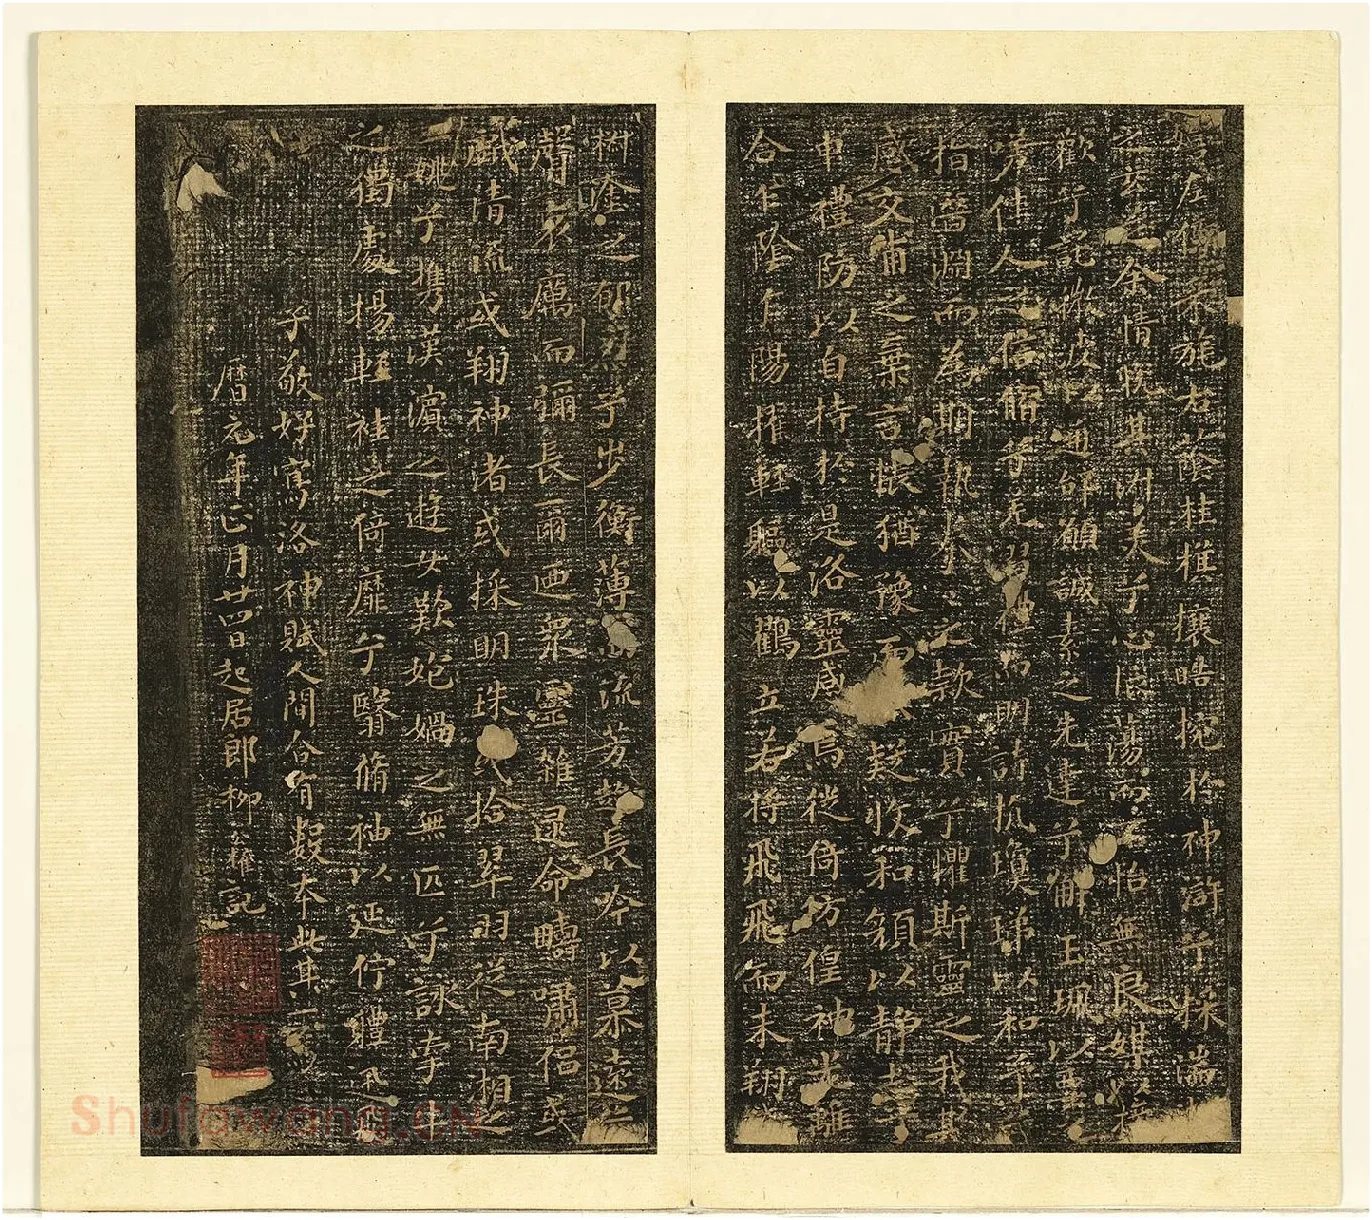 左倚采旄右蔭桂旗攘皓捥於神滸兮採湍
之玄芝余情悅其淑美兮心振蕩而不怡無良媒以接
歡兮託微波以通辭願誠素之先達兮解玉珮以要
嗟佳人之信脩兮羌習禮而明詩抗瓊珶以和予兮
指潛淵而為期執拳之款實兮懼斯靈之我欺
感交甫之棄言悵猶豫而疑收和顏以靜志兮
申禮防以自持於是洛靈感焉徙倚彷徨神光離
合乍陰乍陽擢輕軀以鶴立若將飛飛而未翔
椒塗之郁烈兮步衡薄而流芳超長吟以慕遠兮
聲哀厲而彌長爾迺眾靈雜遝命疇嘯侶或
戲清流或翔神渚或採明珠或拾翠羽從南湘之
二姚兮攜漢濱之遊女歎匏媧之無匹兮詠牽牛
之獨處揚輕袿之倚靡兮翳脩袖以延佇體迅飛
子敬好寫洛神賦人間合有數本此其一
曆元年正月廿四日起居郎柳公權記
Shufawang.CN